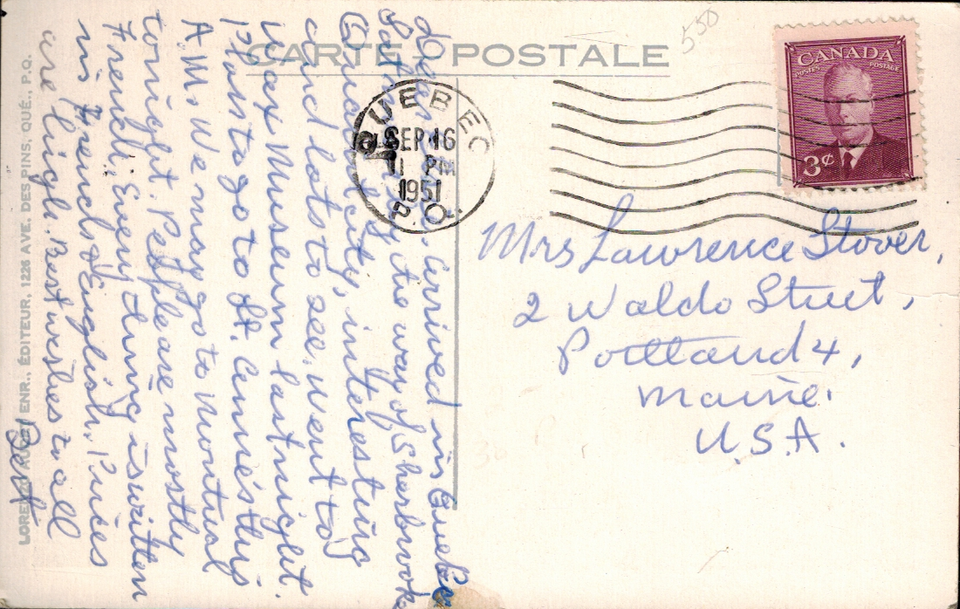 CARTE POSTALE
550
CANADA
POSTES POSTAGE
3¢
QUEBEC
SEP 16
11 PM
1951
P.Q.
Mrs Lawrence Stover,
2 Waldo Street,
Portland 4,
Maine.
U.S.A.
Arrived in Quebec
by the way of Sherbrooke
Quaint old city, interesting
and lots to see. Went to
Wax Museum last night.
Plan to go to St. Anne's this
A.M. We may go to Montreal
tonight. People are mostly
French. Everything is written
in French & English. Prices
are high. Best wishes to all
ENR., ÉDITEUR, 1226 AVE. DES PINS, QUÉ., P.Q.